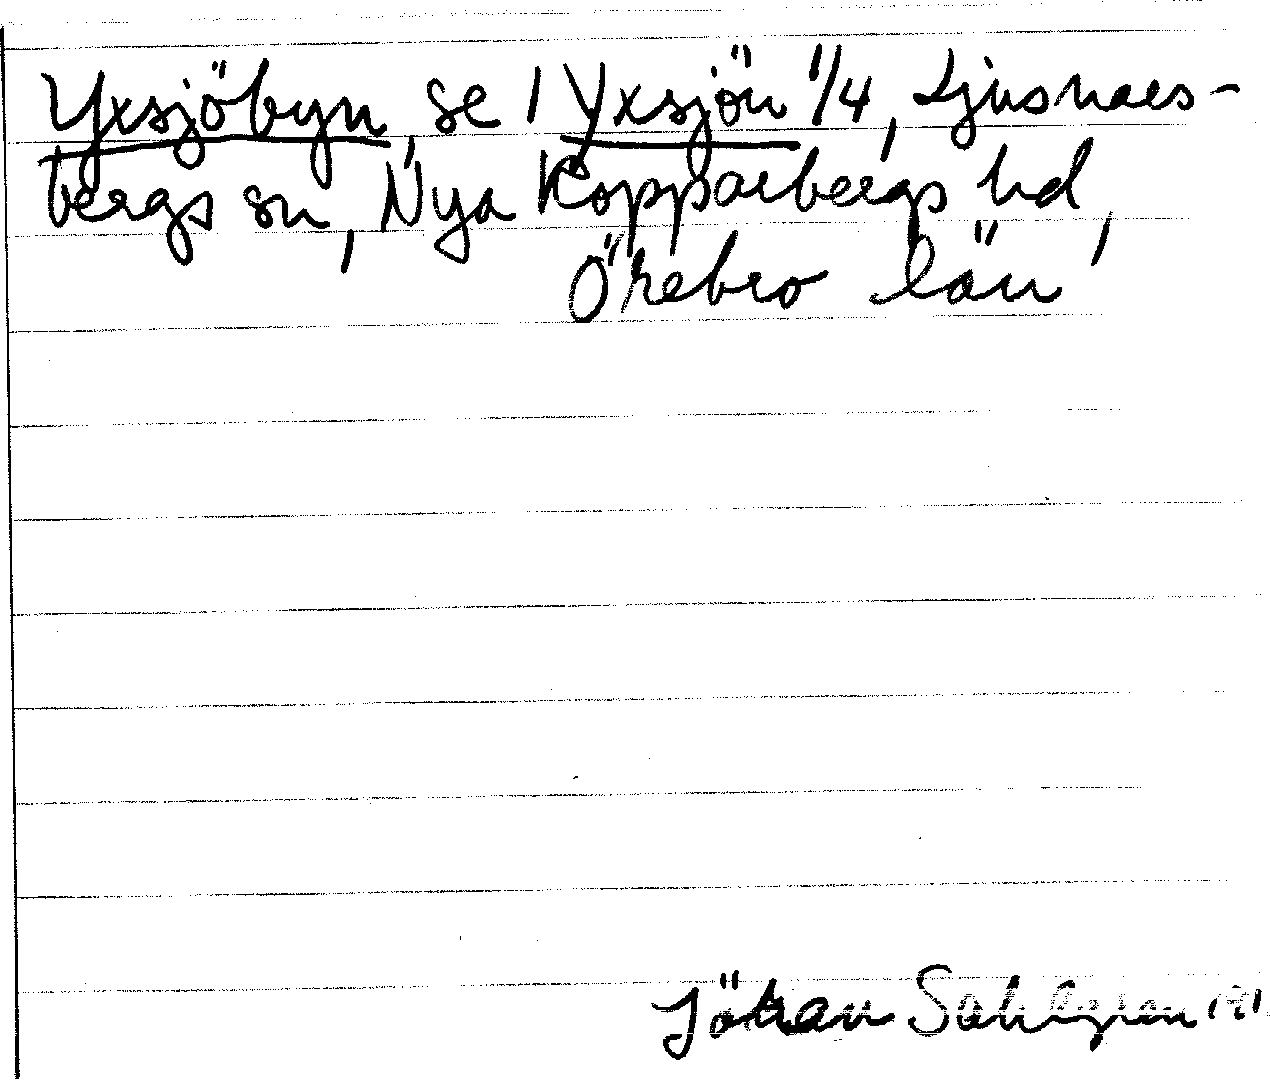 Yxsjöbyn, se 1 Yxsjön 1/4, Ljusnars-
bergs sn, Nya Kopparbergs hd,
Örebro län
Göran Sahlgren